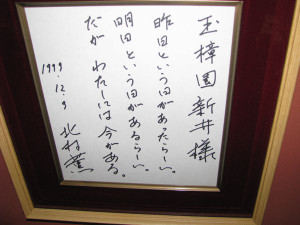 玉樟園新井様
昨日という日があったらしい。
明日という日があるらしい。
だが わたしには 今がある。
1999.12.9
北村薫